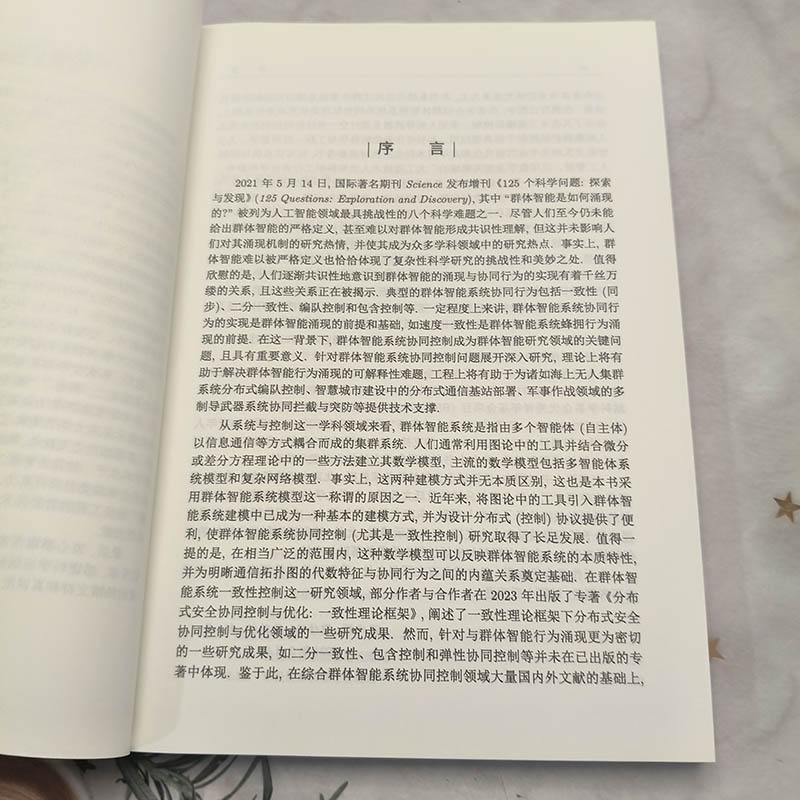 序 言
2021 年 5 月 14 日, 国际著名期刊 Science 发布增刊《125 个科学问题: 探索
与发现》(125 Questions: Exploration and Discovery), 其中 “群体智能是如何涌现
的?” 被列为人工智能领域最具挑战性的八个科学难题之一. 尽管人们至今仍未能
给出群体智能的严格定义, 甚至难以对群体智能形成共识性理解, 但这并未影响人
们对其涌现机制的研究热情, 并使其成为众多学科领域中的研究热点. 事实上, 群
体智能难以被严格定义也恰恰体现了复杂性科学研究的挑战性和美妙之处. 值得
欣慰的是, 人们逐渐共识性地意识到群体智能的涌现与协同行为的实现有着千丝万
缕的关系, 且这些关系正在被揭示. 典型的群体智能系统协同行为包括一致性 (同
步)、二分一致性、编队控制和包含控制等. 一定程度上来讲, 群体智能系统协同行
为的实现是群体智能涌现的前提和基础, 如速度一致性是群体智能系统蜂拥行为涌
现的前提. 在这一背景下, 群体智能系统协同控制成为群体智能研究领域的关键问
题, 且具有重要意义. 针对群体智能系统协同控制问题展开深入研究, 理论上将有
助于解决群体智能行为涌现的可解释性难题, 工程上将有助于为诸如海上无人集群
系统分布式编队控制、智慧城市建设中的分布式通信基站部署、军事作战领域的多
制导武器系统协同拦截与突防等提供技术支撑.
从系统与控制这一学科领域来看, 群体智能系统是指由多个智能体 (自主体)
以信息通信等方式耦合而成的集群系统. 人们通常利用图论中的工具并结合微分
或差分方程理论中的一些方法建立其数学模型, 主流的数学模型包括多智能体系
统模型和复杂网络模型. 事实上, 这两种建模方式并无本质区别, 这也是本书采
用群体智能系统模型这一称谓的原因之一. 近年来, 将图论中的工具引入群体智
能系统建模中已成为一种基本的建模方式, 并为设计分布式 (控制) 协议提供了便
利, 使群体智能系统协同控制 (尤其是一致性控制) 研究取得了长足发展. 值得一
提的是, 在相当广泛的范围内, 这种数学模型可以反映群体智能系统的本质特性,
并为明晰通信拓扑图的代数特征与协同行为之间的内蕴关系奠定基础. 在群体
智能系统一致性控制这一研究领域, 部分作者与合作者在 2023 年出版了专著《分布
式安全协同控制与优化: 一致性理论框架》, 阐述了一致性理论框架下分布式安全
协同控制与优化领域的一些研究成果. 然而, 针对与群体智能行为涌现更为密切
的一些研究成果, 如二分一致性、包含控制和弹性协同控制等并未在已出版的专
著中体现. 鉴于此, 在综合群体智能系统协同控制领域大量国内外文献的基础上,